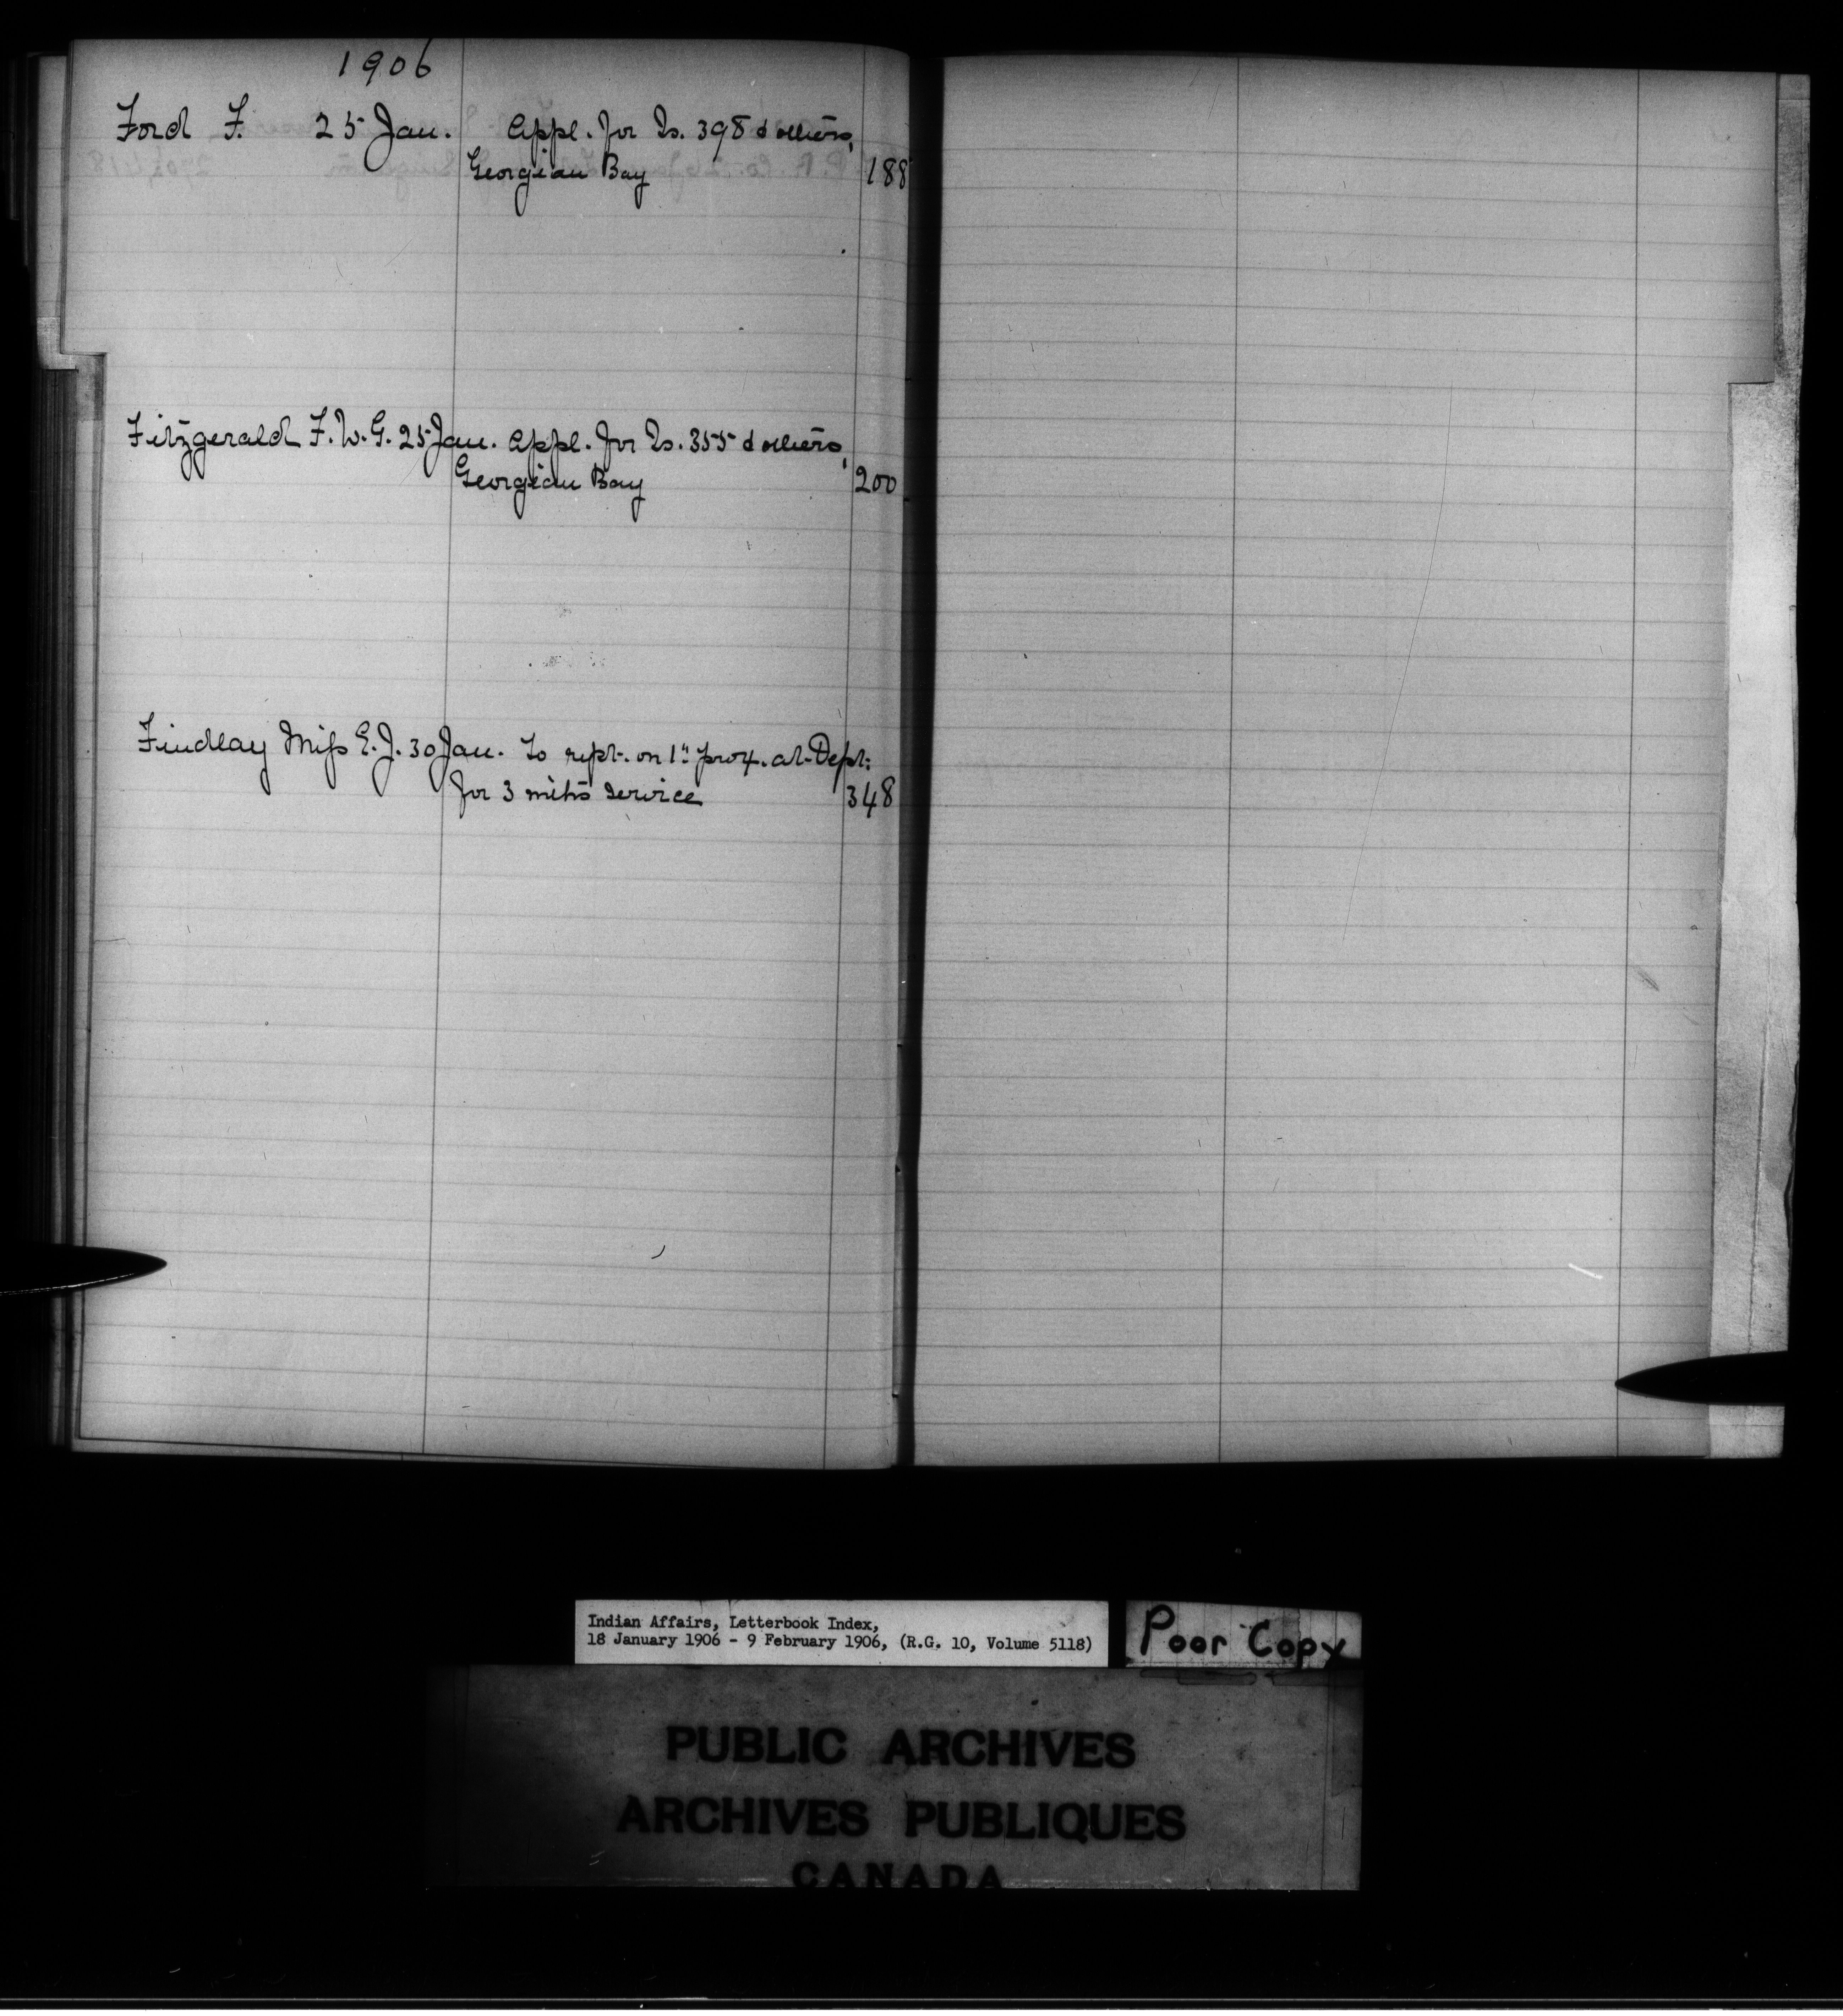 1906
Ford F. 25 Jan. Appl. for Is. 398 & others,
Georgian Bay 188
Fitzgerald F. W. G. 25 Jan. Appl. for Is. 355 & others,
Georgian Bay 200
Findlay Miss E. J. 30 Jan. To rept. on 1" prox. at Dept:
for 3 mths service 348
Indian Affairs, Letterbook Index,
18 January 1906 - 9 February 1906, (R.G. 10, Volume 5118)
Poor Copy
PUBLIC ARCHIVES
ARCHIVES PUBLIQUES
CANADA